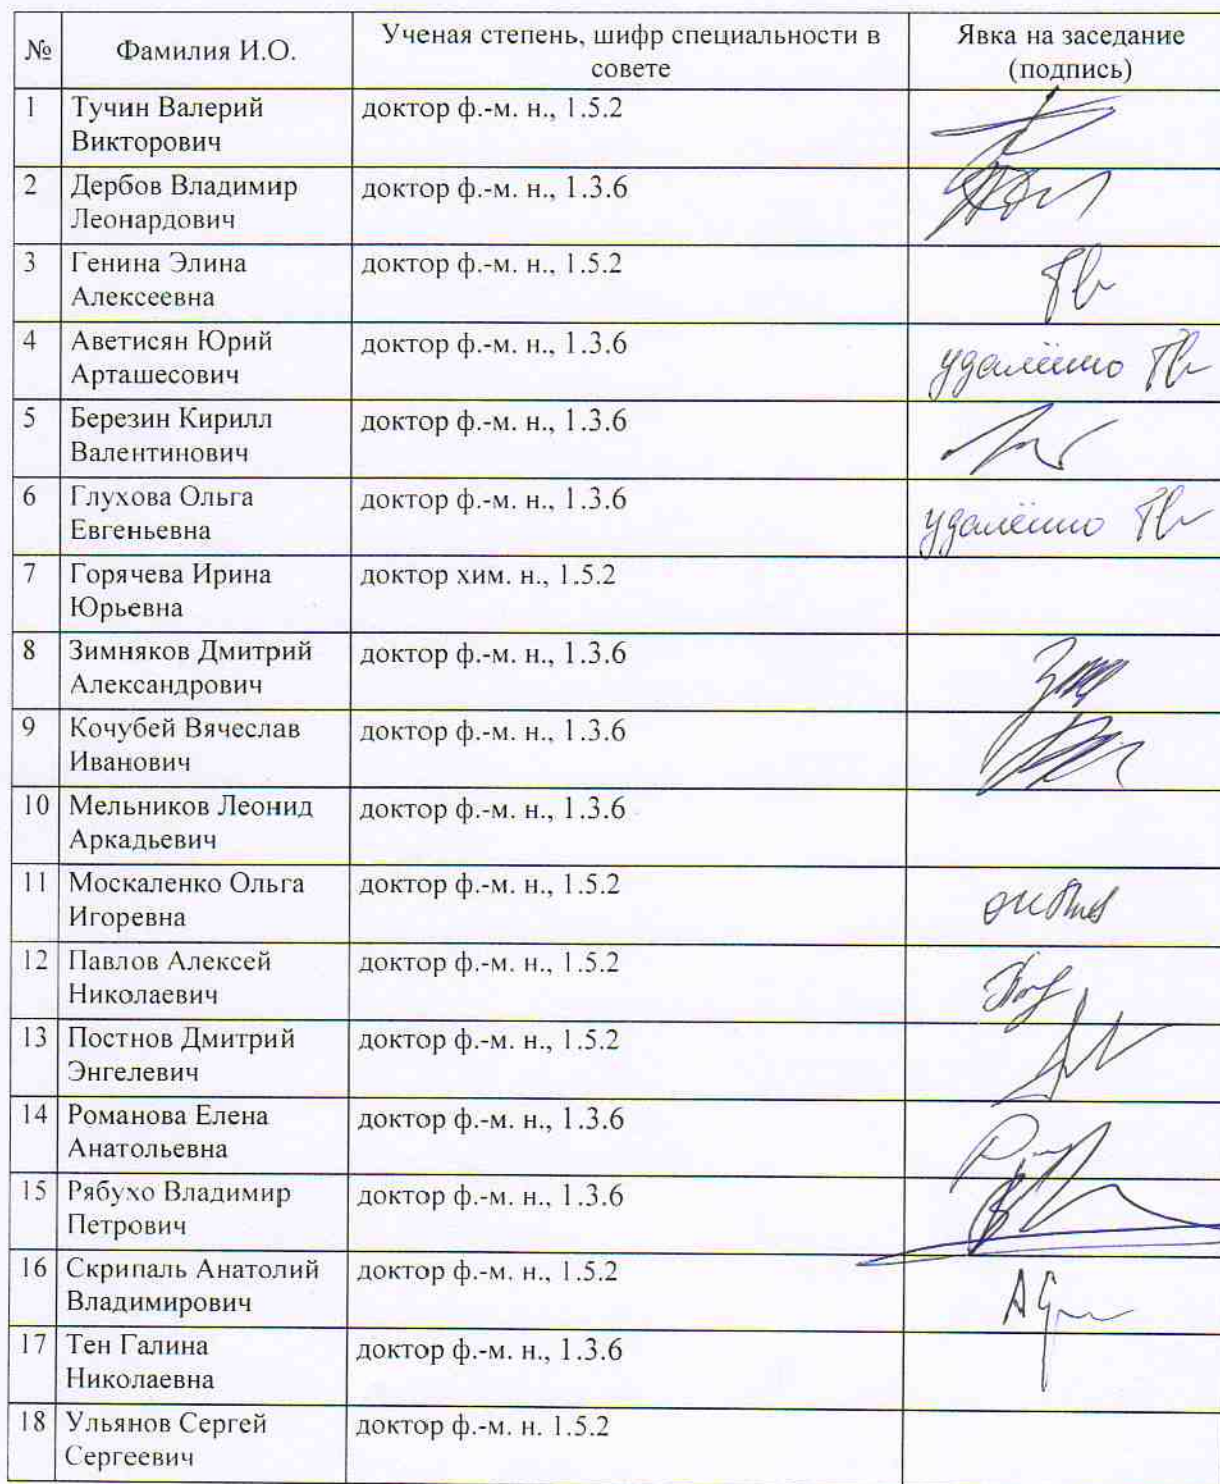 №
Фамилия И.О.
Ученая степень, шифр специальности в
совете
Явка на заседание
(подпись)
1
Тучин Валерий
Викторович
доктор ф.-м. н., 1.5.2
2
Дербов Владимир
Леонардович
доктор ф.-м. н., 1.3.6
3
Генина Элина
Алексеевна
доктор ф.-м. н., 1.5.2
4
Аветисян Юрий
Арташесович
доктор ф.-м. н., 1.3.6
удалённо
5
Березин Кирилл
Валентинович
доктор ф.-м. н., 1.3.6
6
Глухова Ольга
Евгеньевна
доктор ф.-м. н., 1.3.6
удалённо
7
Горячева Ирина
Юрьевна
доктор хим. н., 1.5.2
8
Зимняков Дмитрий
Александрович
доктор ф.-м. н., 1.3.6
9
Кочубей Вячеслав
Иванович
доктор ф.-м. н., 1.3.6
10
Мельников Леонид
Аркадьевич
доктор ф.-м. н., 1.3.6
11
Москаленко Ольга
Игоревна
доктор ф.-м. н., 1.5.2
12
Павлов Алексей
Николаевич
доктор ф.-м. н., 1.5.2
13
Постнов Дмитрий
Энгелевич
доктор ф.-м. н., 1.5.2
14
Романова Елена
Анатольевна
доктор ф.-м. н., 1.3.6
15
Рябухо Владимир
Петрович
доктор ф.-м. н., 1.3.6
16
Скрипаль Анатолий
Владимирович
доктор ф.-м. н., 1.5.2
17
Тен Галина
Николаевна
доктор ф.-м. н., 1.3.6
18
Ульянов Сергей
Сергеевич
доктор ф.-м. н. 1.5.2